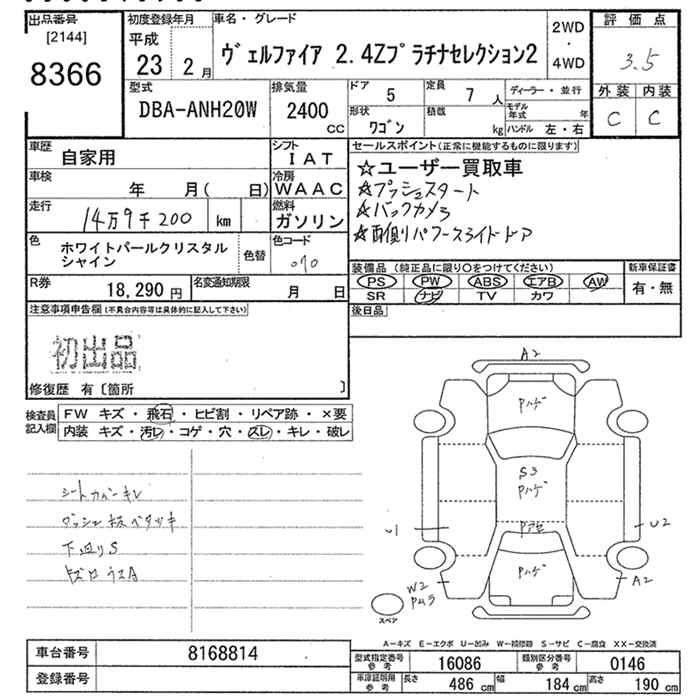 出品番号
[2144]
8366
初度登録年月
平成
23 2月
車名・グレード
ヴェルファイア 2.4Zプラチナセレクション2
2WD
・
4WD
評価点
3.5
外装 内装
C C
型式
DBA-ANH20W
排気量
2400
cc
ドア
5
定員
7人
形状
ワゴン
積載
kg
ディーラー・並行
モデル年式 年
ハンドル 左・右
車歴
自家用
シフト
IAT
車検
年 月( 日)
冷房
WAAC
走行
14万9千200 km
燃料
ガソリン
色
ホワイトパールクリスタル
シャイン
色替
色コード
070
R券
18,290円
名変通知期限
月 日
セールスポイント(正常に機能するものに限ります)
☆ユーザー買取車
☆プッシュスタート
☆バックカメラ
☆両側パワースライドドア
装備品(純正品に限り○をつけてください)
PS PW ABS エアB AW
SR ナビ TV カワ
新車保証書
有・無
後日品
注意事項申告欄(不具合内容等は具体的に記入して下さい)
初出品
修復歴 有〔箇所 〕
検査員
記入欄
FW キズ・飛石・ヒビ割・リペア跡・×要
内装 キズ・汚レ・コゲ・穴・スレ・キレ・破レ
シートカバーキレ
ダッシュ板ベタツキ
下廻りS
A2
Pハゲ
S3
Pハゲ
Pアセ
U1
U2
Pハゲ
W2
A2
スペア
A-キズ E-エクボ U-凹み W-補修跡 S-サビ C-腐食 XX-交換済
車台番号
8168814
登録番号
型式指定番号
参考
16086
類別区分番号
参考
0146
車庫証明用
参考
長さ 486 cm 幅 184 cm 高さ 190 cm